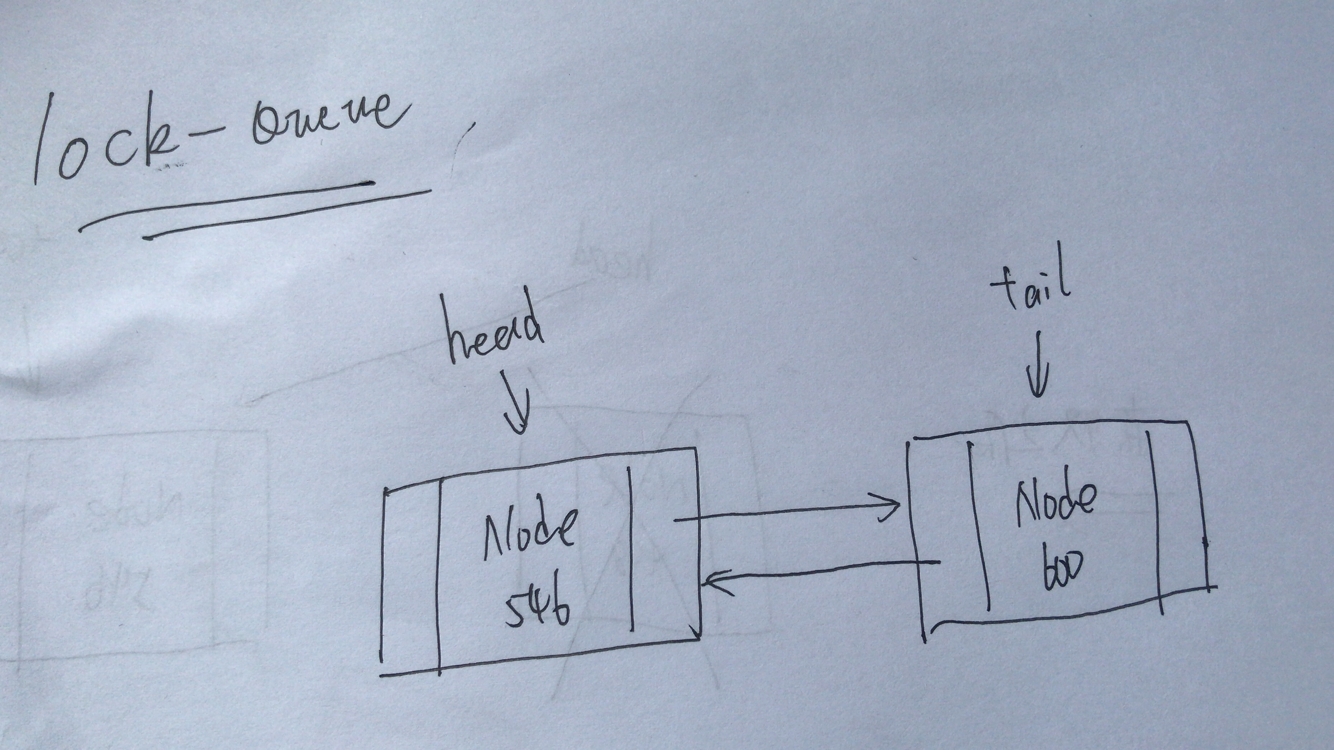 lock-queue
head
tail
Node
546
Node
600